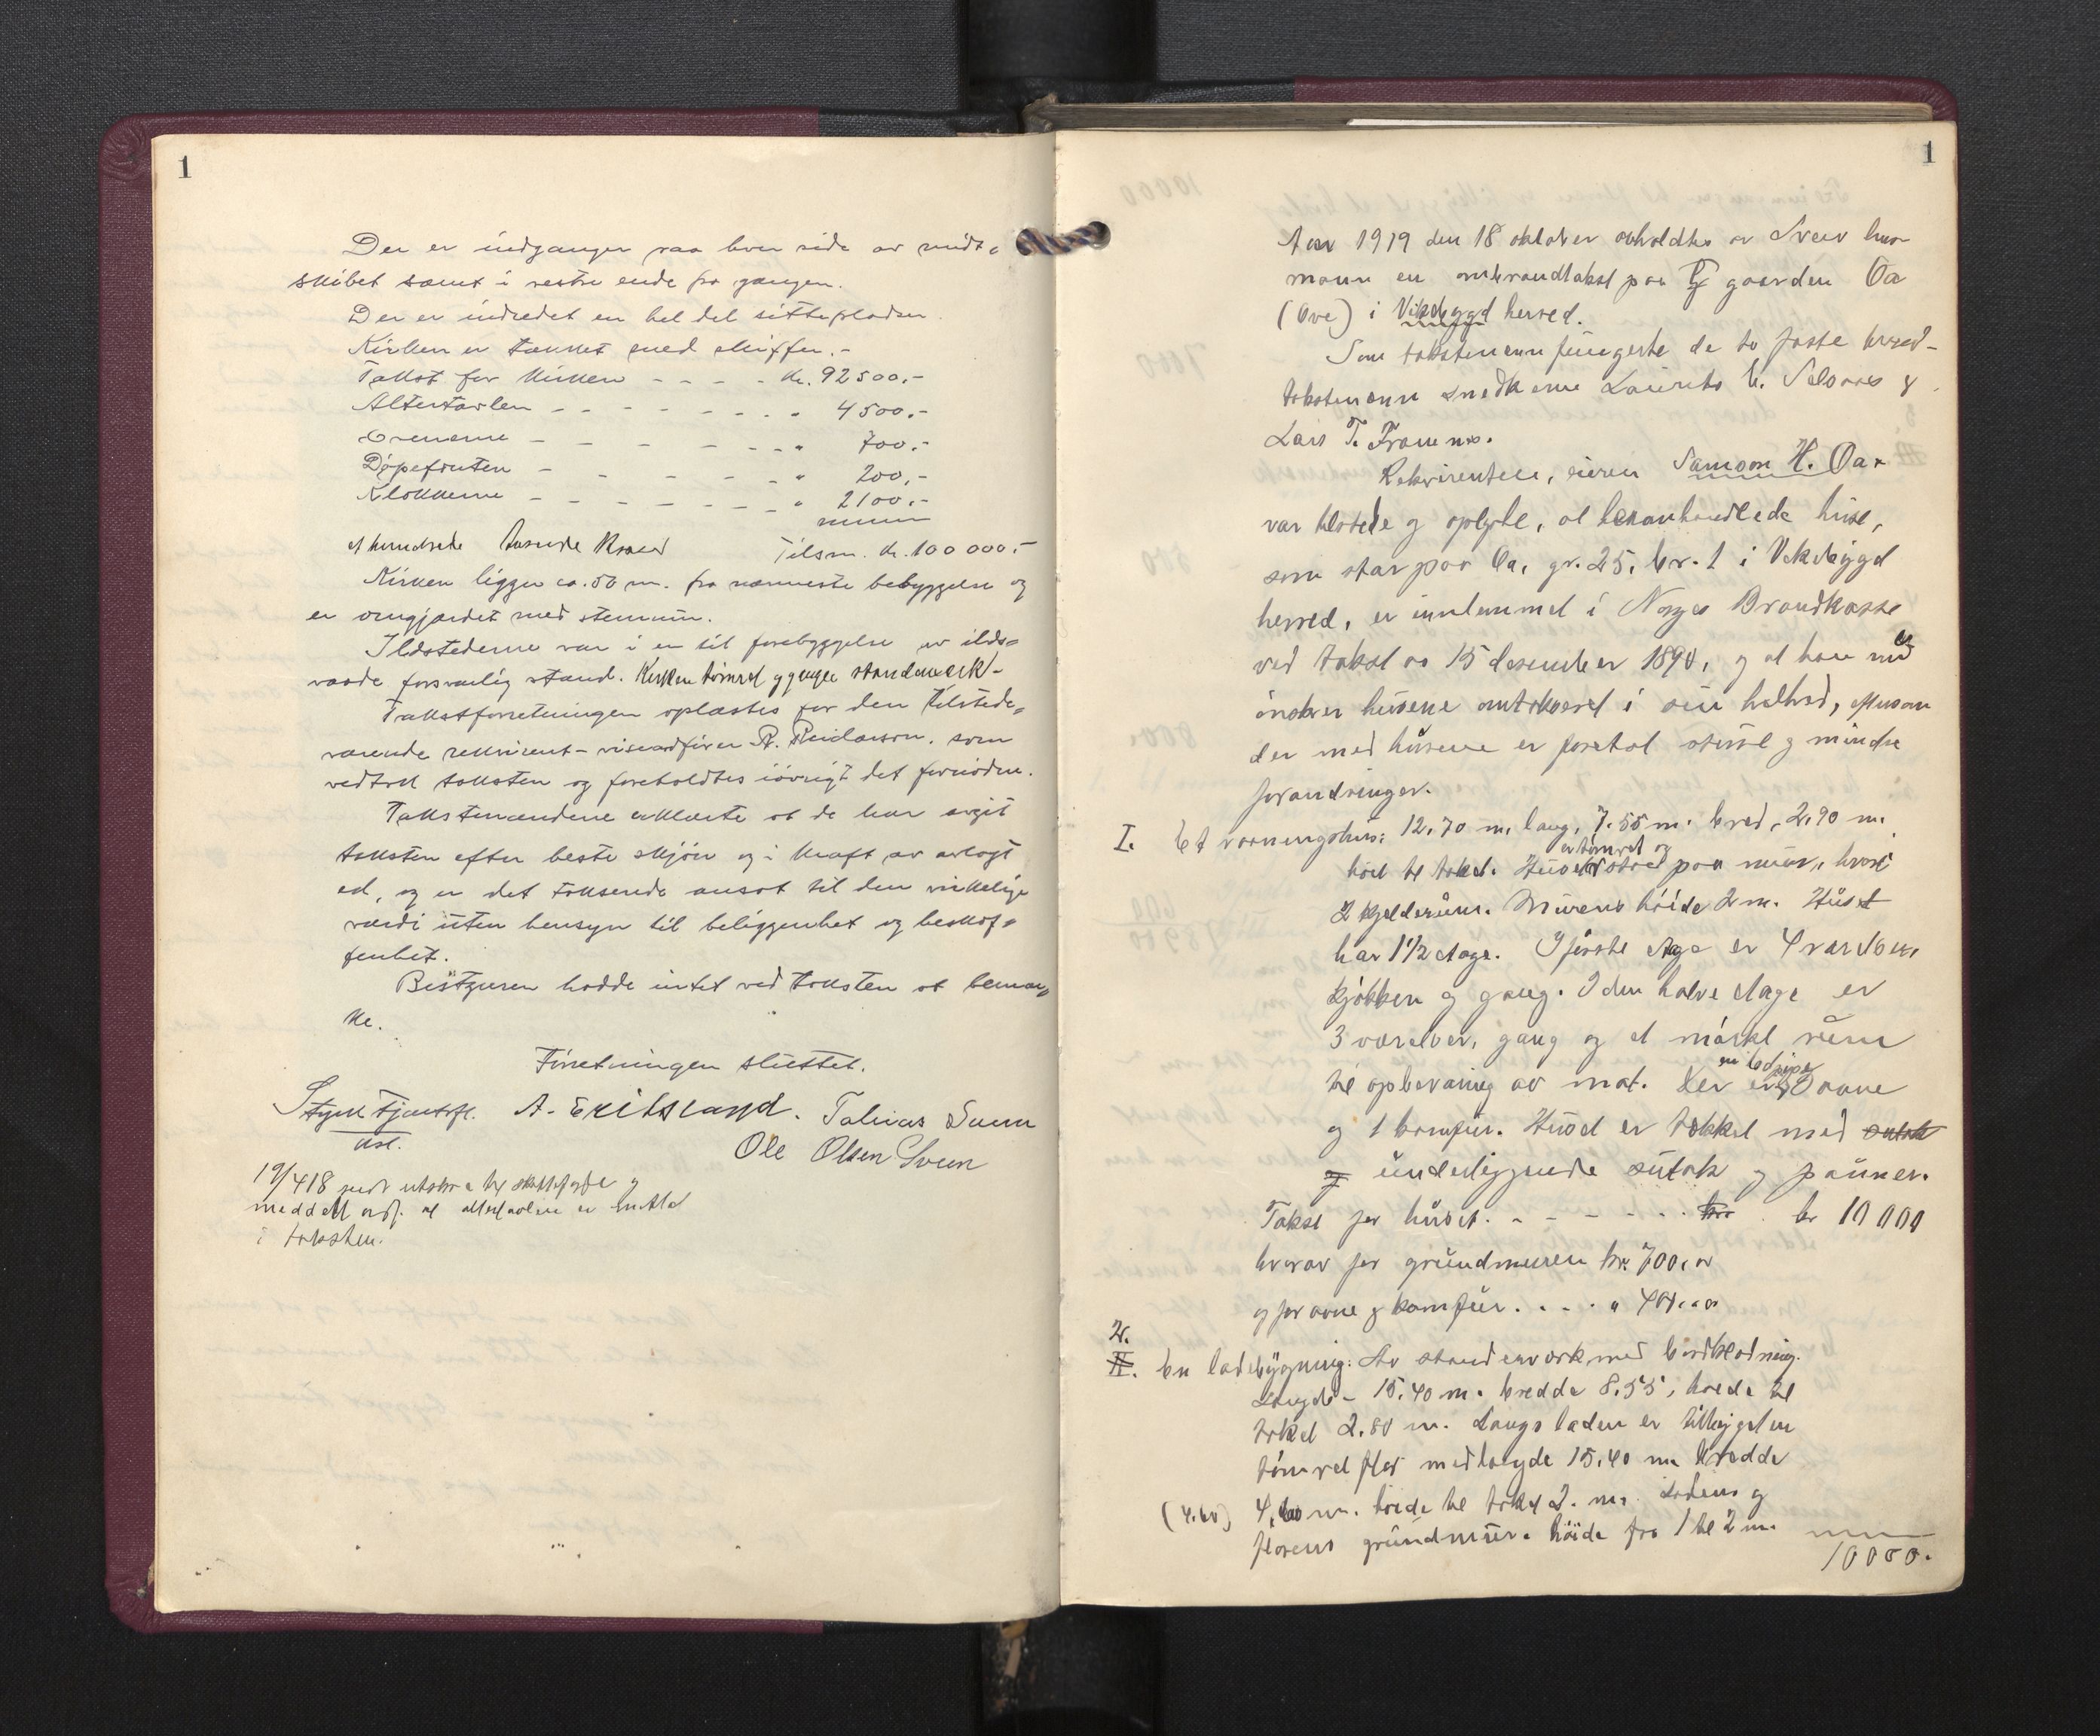 1
Der er indganger paa hver side av midt-
skibet samt i vestre ende fra gangen.
Der er indredet en hel del sitteplodser.
Kirken er tækket med skiffer.-
Takst for kirken - - - - kr. 92500.-
Altertavlen - - - - - - - - " 4500.-
Ovenerne - - - - - - - " 700.-
Døpefonten - - - - - - " 200.-
Klokkerne - - - - - - - " 2100.-
et hundrede tusende kroner Tilsm. kr. 100 000.-
Kirken ligger ca. 50 m. fra nærmeste bebyggelse og
er omgjærdet med stenmur.
Ildstederne var i en til forebyggelse av ilds=
vaade forsvarlig stand. Kirken tømret og gange standerverk-
Takstforretningen oplæstes for den tilstede=
værende rekvirent - viseordfører R. Reidarson, som
vedtok taksten og foreholdtes iøvrigt det fornødne.
Takstmændene erklærte at de har avgit
taksten efter beste skjøn og i kraft av avlagt
ed, og er det takserede ansat til den virkelige
værdi uten hensyn til beliggenhet og beskaf=
fenhet.
Bestyreren hadde intet ved taksten at bemær=
ke.
Forretningen sluttet.
A. Eritsland. Tobias Sveen
ast. Ole Olsen Sveen
19/4 18 sendt utskr. a til skattefogde og
meddelt ordf. at altertavlen er inntat
i taksten.
1
Aar 1919 den 18 oktober avholdtes av Sveio lens-
mann en ombrandtakst paa gaarden Oa
(Ove) i Vikebygd herred.
Som takstmenn fungerte de to faste herreds-
takstmenn snedkerne Laurits V. Selvaag og
Lars T. Framnes.
Rekvirenten, eieren Samson H. Oa
var tilstede og oplyste, at heromhandlede huse,
som star paa Oa, gr. 25. br. 1 i Vikebygd
herred, er innlemmet i Norges Brandkasse
ved takst av 15 desember 1890, og at han nu
ønsker husene omtaksert i sin helhet, eftersom
der med husene er foretat større og mindre
forandringer.
I. Et vaaningshus: 12,70 m. lang, 7.55 m. bred, 2,90 m.
er tømret og
høit til taket. Huset staar paa mur, hvori
2 kjelderum. Murens høide 2 m. Huset
har 1 1/2 etage. I første etage er 4 værelser,
kjøkken og gang. I den halve etage er
3 værelser, gang og et mørkt rum
en pipe
til opbevaring av mat. Der er 2 ovne
og 1 komfur. Huset er tekket med sutak
og underliggende sutak og panner.
Takst for huset. - - - - - - - kr. kr 10 000
hvorav for grundmuren kr. 700,00
og for ovne og komfur. . - - . " 400.00
2.
II. En ladebygning: Av standerverk med bordklædning.
Længde - 15.40 m. bredde 8.55, høide til
taket 2.80 m. Langs laden er tilbygget en
tømret flor med længde 15,40 m bredde
(4.60) 4,60 m. høide til taket 2. m. Ladens og
florens grundmur. høide fra 1 til 2 m.
10000.